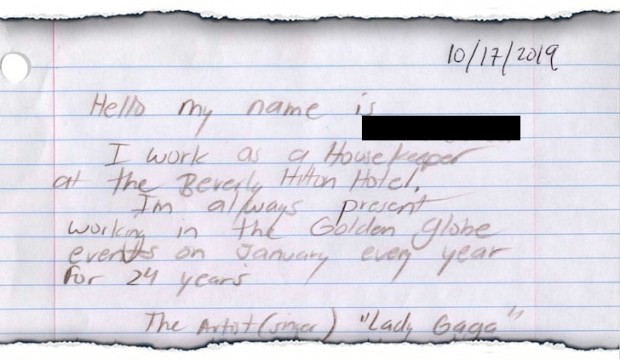 10/17/2019
Hello my name is
I work as a Housekeeper
at the Beverly Hilton Hotel,
Im always present
working in the Golden globe
events on January every year
for 24 years
The Artist (singer) "Lady Gaga"